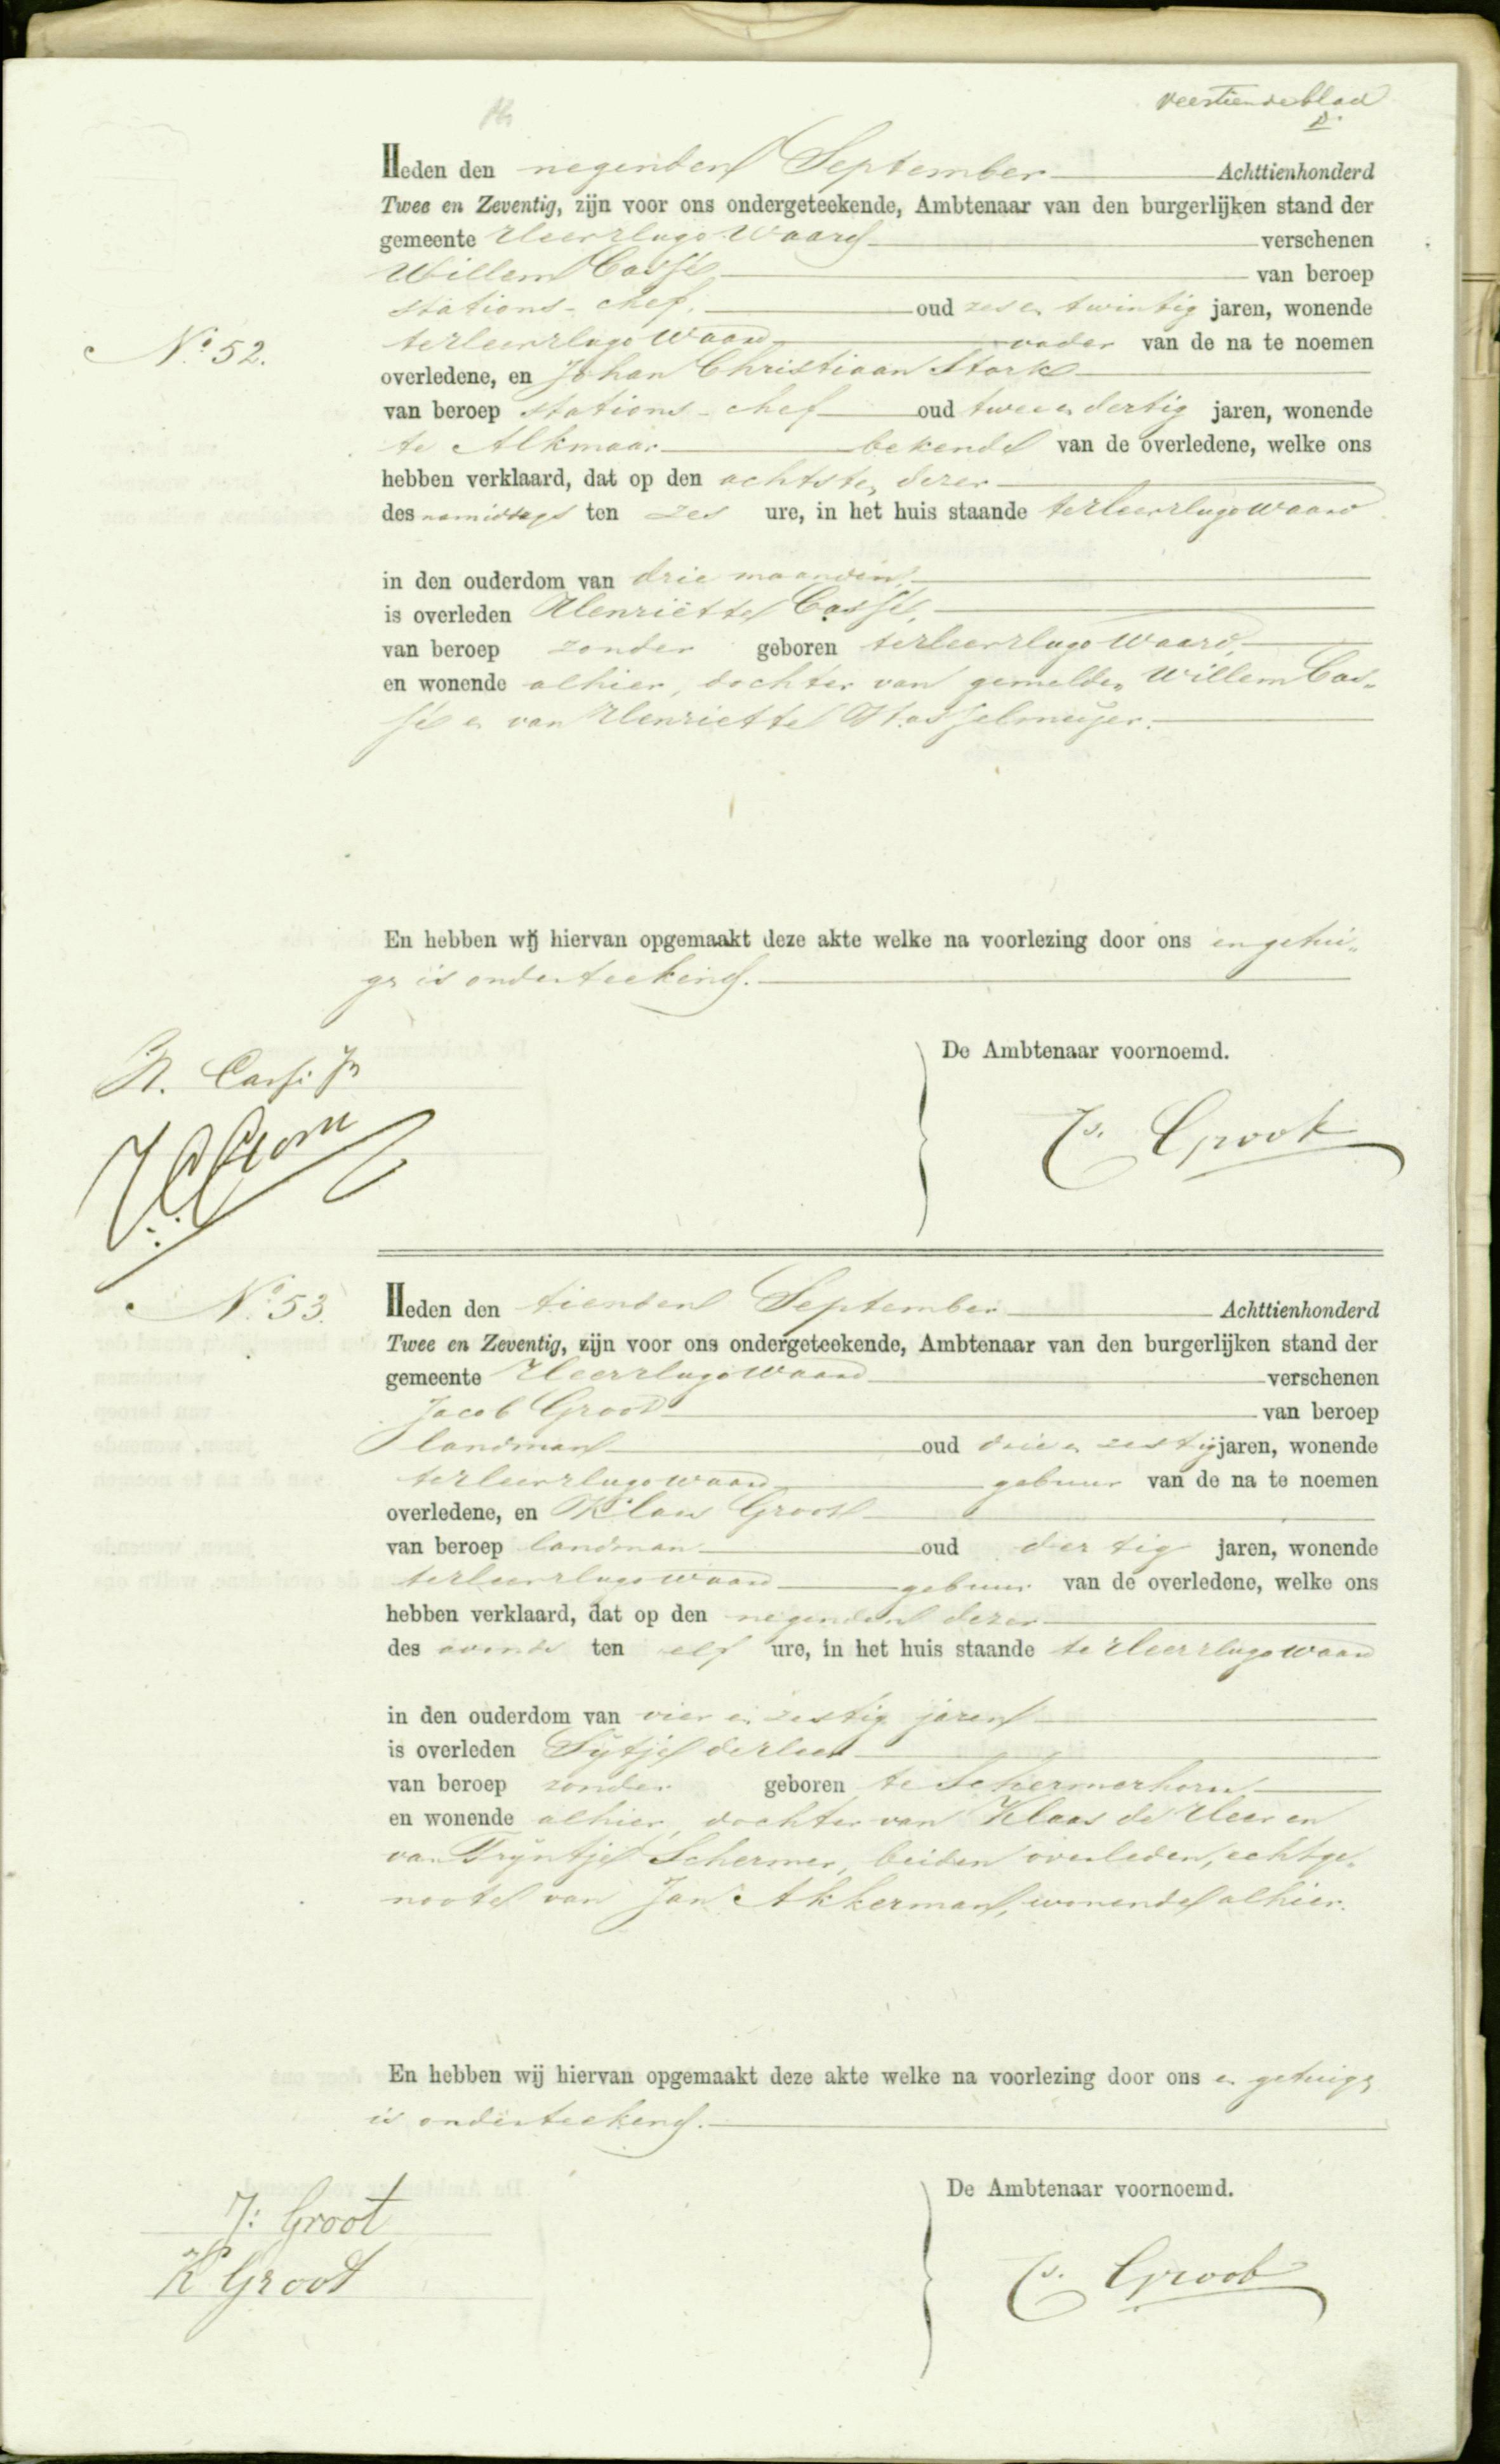 veertiende blad
Heden den negenden September Achttienhonderd
Twee en Zeventig, zijn voor ons ondergeteekende, Ambtenaar van den burgerlijken stand der
gemeente Heerhugowaard verschenen
Willem Cassé van beroep
stations-chef, oud zes en twintig jaren, wonende
No. 52.
te Heerhugowaard vader van de na te noemen
overledene, en Johan Christiaan Stork
van beroep stations-chef oud twee en dertig jaren, wonende
te Alkmaar bekende van de overledene, welke ons
hebben verklaard, dat op den achtsten dezer
des namiddags ten zes ure, in het huis staande te Heerhugowaard
in den ouderdom van drie maanden,
is overleden Henriëtte Cassé,
van beroep zonder geboren te Heerhugowaard,
en wonende alhier, dochter van gemelden Willem Cas-
sé en van Henriette Hasselmeijer.
En hebben wij hiervan opgemaakt deze akte welke na voorlezing door ons en getui-
gen is onderteekend.
De Ambtenaar voornoemd.
W. Cassé Jr
Js. Groot
No. 53.
Heden den tienden September Achttienhonderd
Twee en Zeventig, zijn voor ons ondergeteekende, Ambtenaar van den burgerlijken stand der
gemeente Heerhugowaard verschenen
Jacob Groot van beroep
landman oud drie en zestig jaren, wonende
te Heerhugowaard gebuur van de na te noemen
overledene, en Klaas Groot
van beroep landman oud dertig jaren, wonende
te Heerhugowaard gebuur van de overledene, welke ons
hebben verklaard, dat op den negenden dezer
des avonds ten elf ure, in het huis staande te Heerhugowaard
in den ouderdom van vier en zestig jaren
is overleden Sijtje de Heer
van beroep zonder geboren te Schermerhorn
en wonende alhier, dochter van Klaas de Heer en
van Trijntje Schermer, beiden overleden, echtge-
noote van Jan Akkerman, wonende alhier.
En hebben wij hiervan opgemaakt deze akte welke na voorlezing door ons en getuigen
is onderteekend.
De Ambtenaar voornoemd.
J: Groot
K Groot
Js. Groot